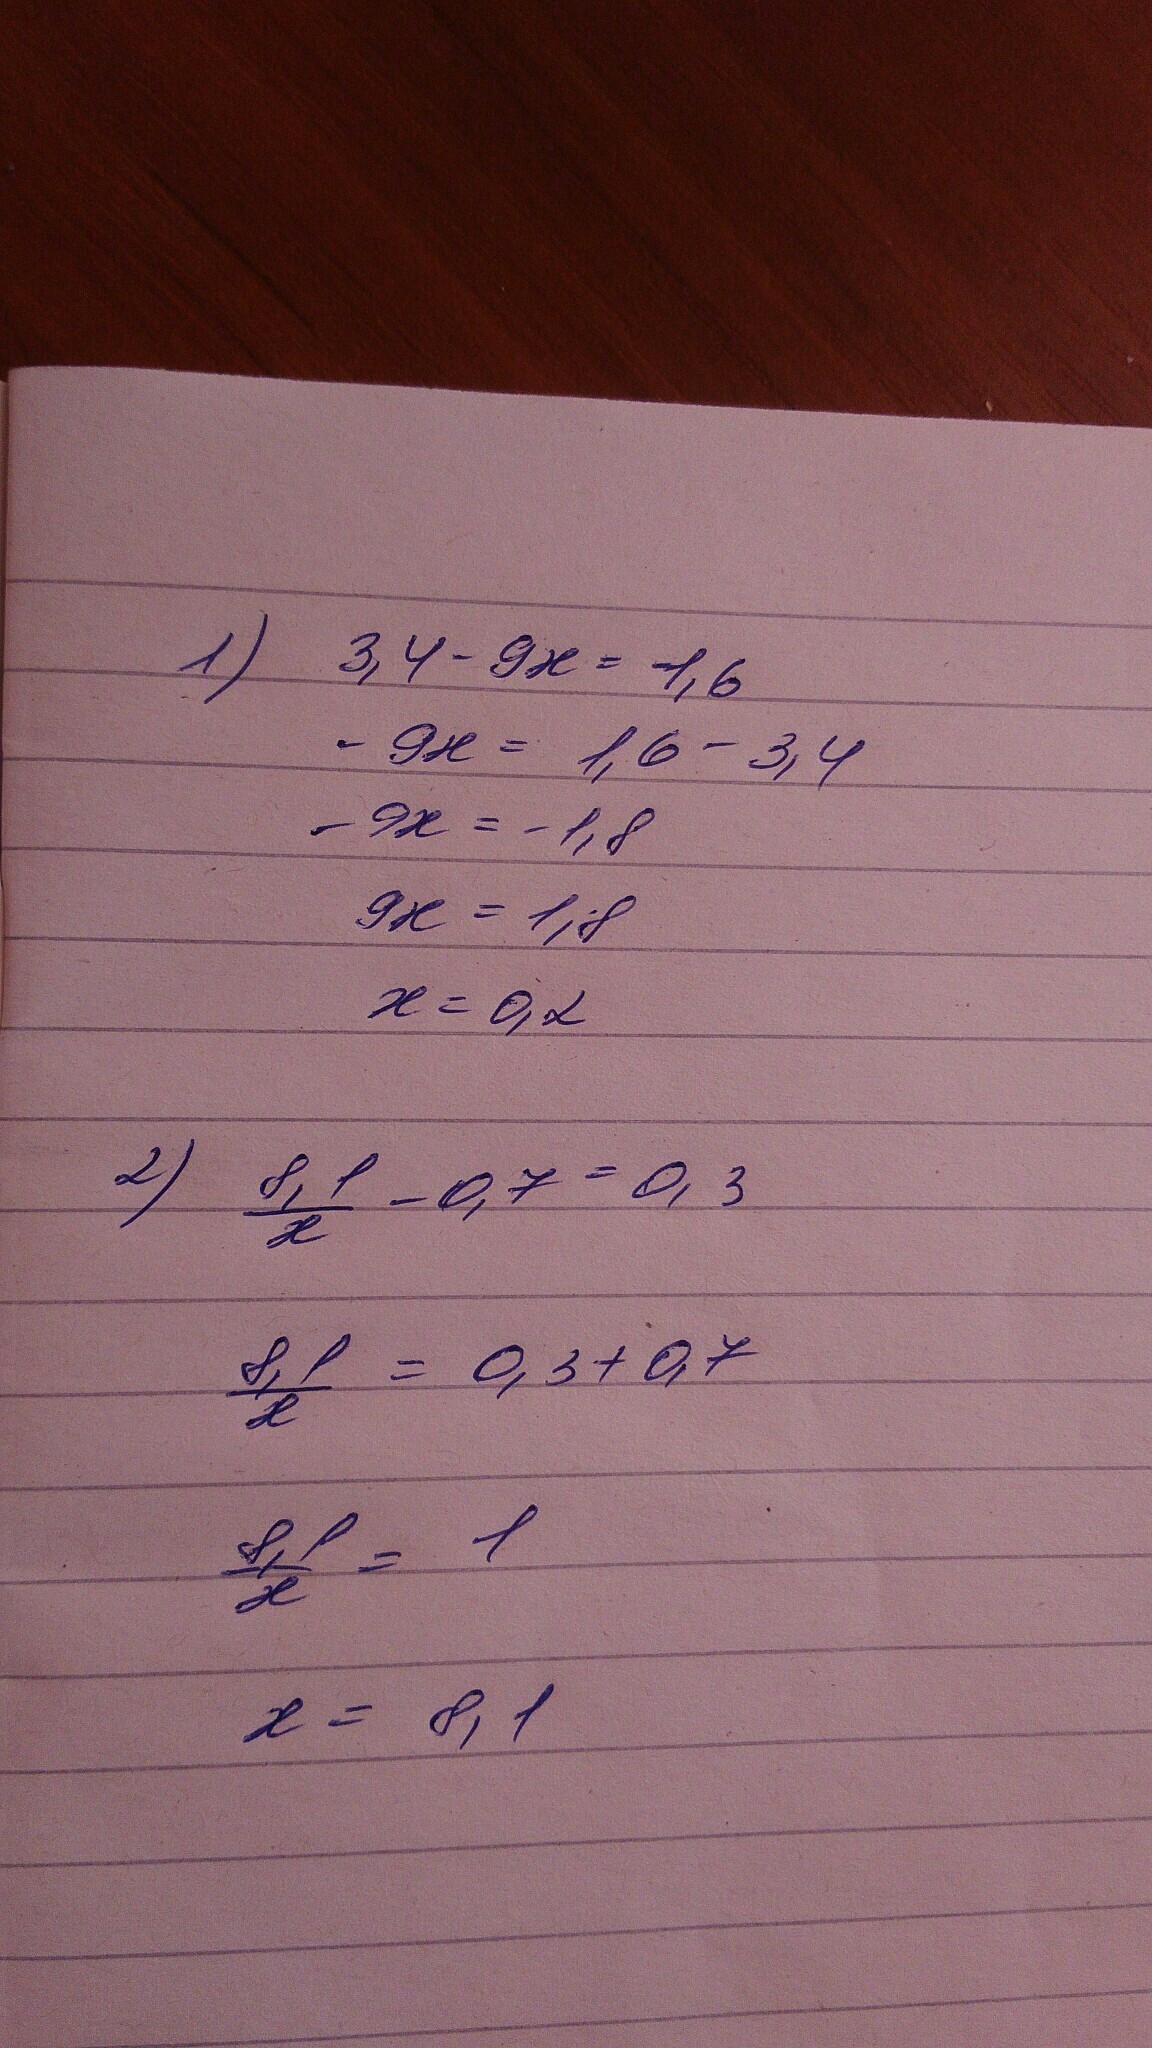 1) 3,4 - 9x = -1,6
- 9x = 1,6 - 3,4
- 9x = - 1,8
9x = 1,8
x = 0,2
2) 8,1/x - 0,7 = 0,3
8,1/x = 0,3 + 0,7
8,1/x = 1
x = 8,1